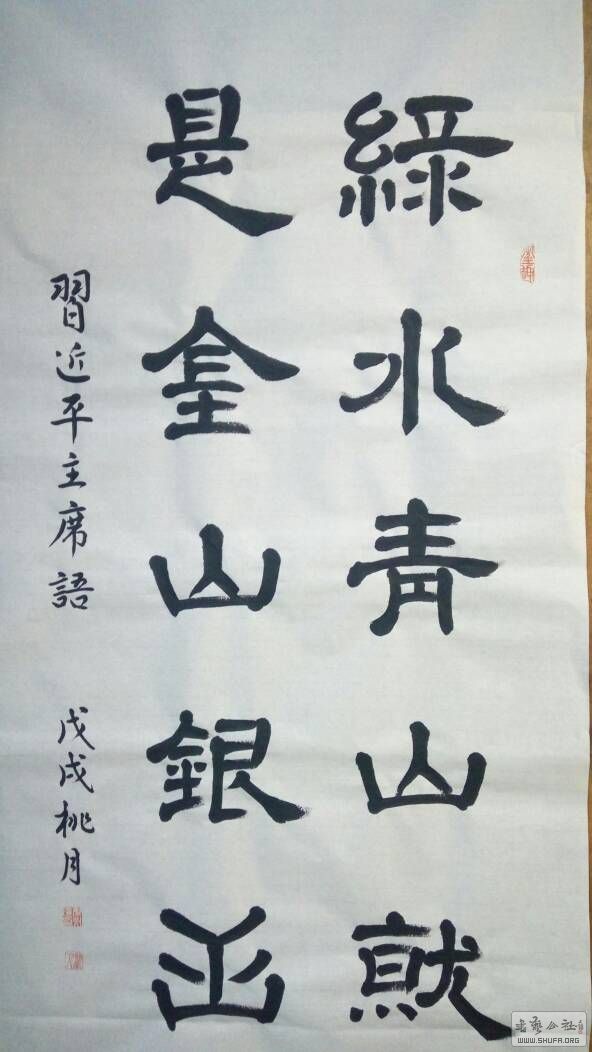 綠水青山就
是金山銀山
習近平主席語 戊戌桃月
書藝公社
WWW.SHUFA.ORG